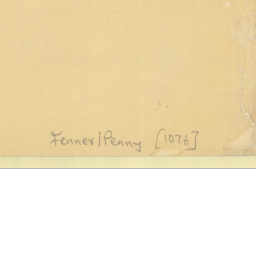 Fenner/Penny [1076]